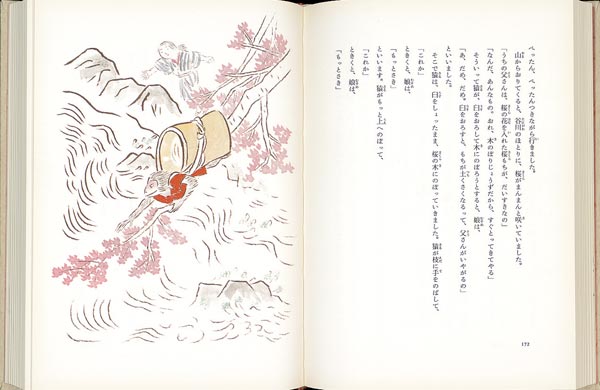 ぺったん、ぺったんつきながら行きました。
山からおりてくると、谷川のほとりに、桜がまんまんと咲いていました。
「うちの父さんは、桜の花を入れた桜もちが、だいすきなの」
「なんだ、そんなもの。おれ、木のぼりじょうずだから、すぐとってきてやる」
そういって猿が、臼をおろして木にのぼろうとすると、娘は、
「あ、だめ、だめ。臼をおろすと、もちが土くさくなるって、父さんがいやがるの」
といいました。
そこで猿は、臼をしょったまま、桜の木にのぼっていきました。猿が枝に手をのばして、
「これか」
ときくと、娘は、
「もっとさき」
といいます。猿がもっと上へのぼって、
「これか」
ときくと、娘は、
「もっとさき」
172